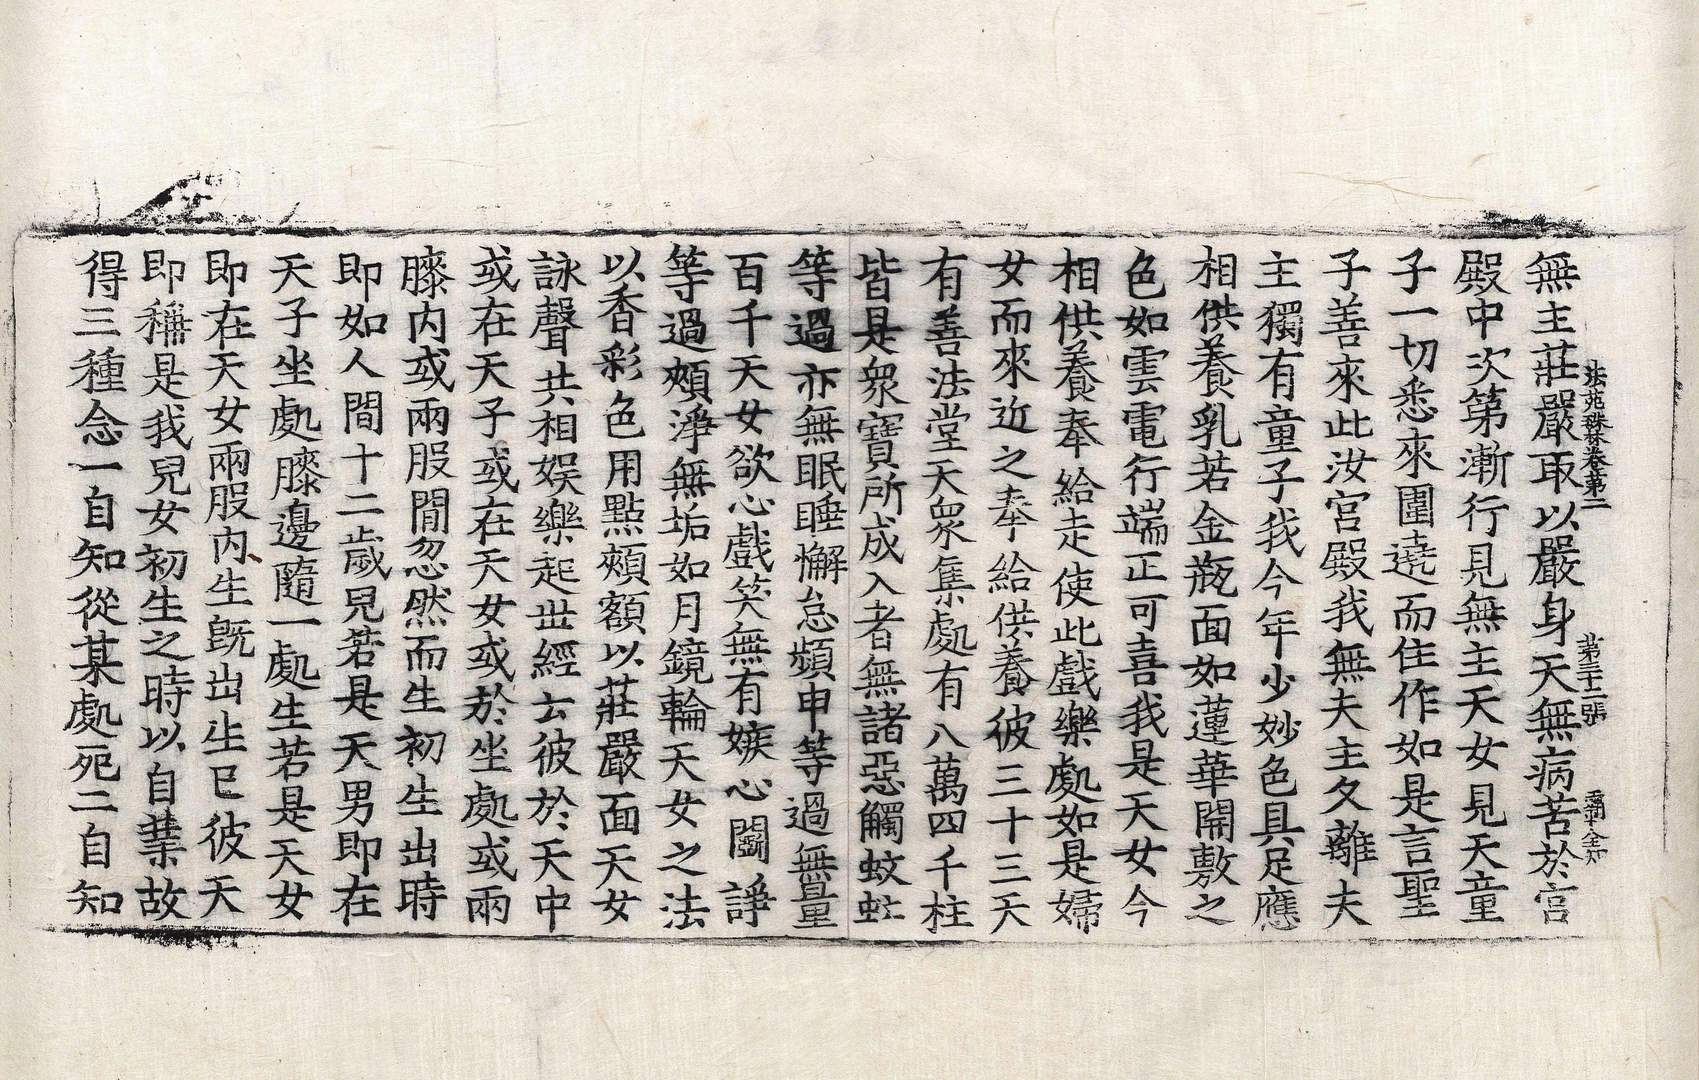 法苑珠林卷第二 第三十二張
無主莊嚴取以嚴身天無病苦於宮
殿中次第漸行見無主天女見天童
子一切悉來圍遶而住作如是言聖
子善來此汝宮殿我無夫主久離夫
主獨有童子我今年少妙色具足應
相供養乳若金瓶面如蓮華開敷之
色如雲電行端正可喜我是天女今
相供養奉給走使此戲樂處如是婦
女而來近之奉給供養彼三十三天
有善法堂天衆集處有八萬四千柱
皆是衆寶所成入者無諸惡觸蚊虻
等過亦無眠睡懈怠頻申等過無量
百千天女欲心戲笑無有嫉心鬪諍
等過頰淨無垢如月鏡輪天女之法
以香彩色用點頰額以莊嚴面天女
詠聲共相娱樂起世經云彼於天中
或在天子或在天女或於坐處或兩
膝内或兩股間忽然而生初生出時
即如人間十二歲兒若是天男即在
天子坐處膝邊隨一處生若是天女
即在天女兩股内生旣出生已彼天
即稱是我兒女初生之時以自業故
得三種念一自知從某處死二自知